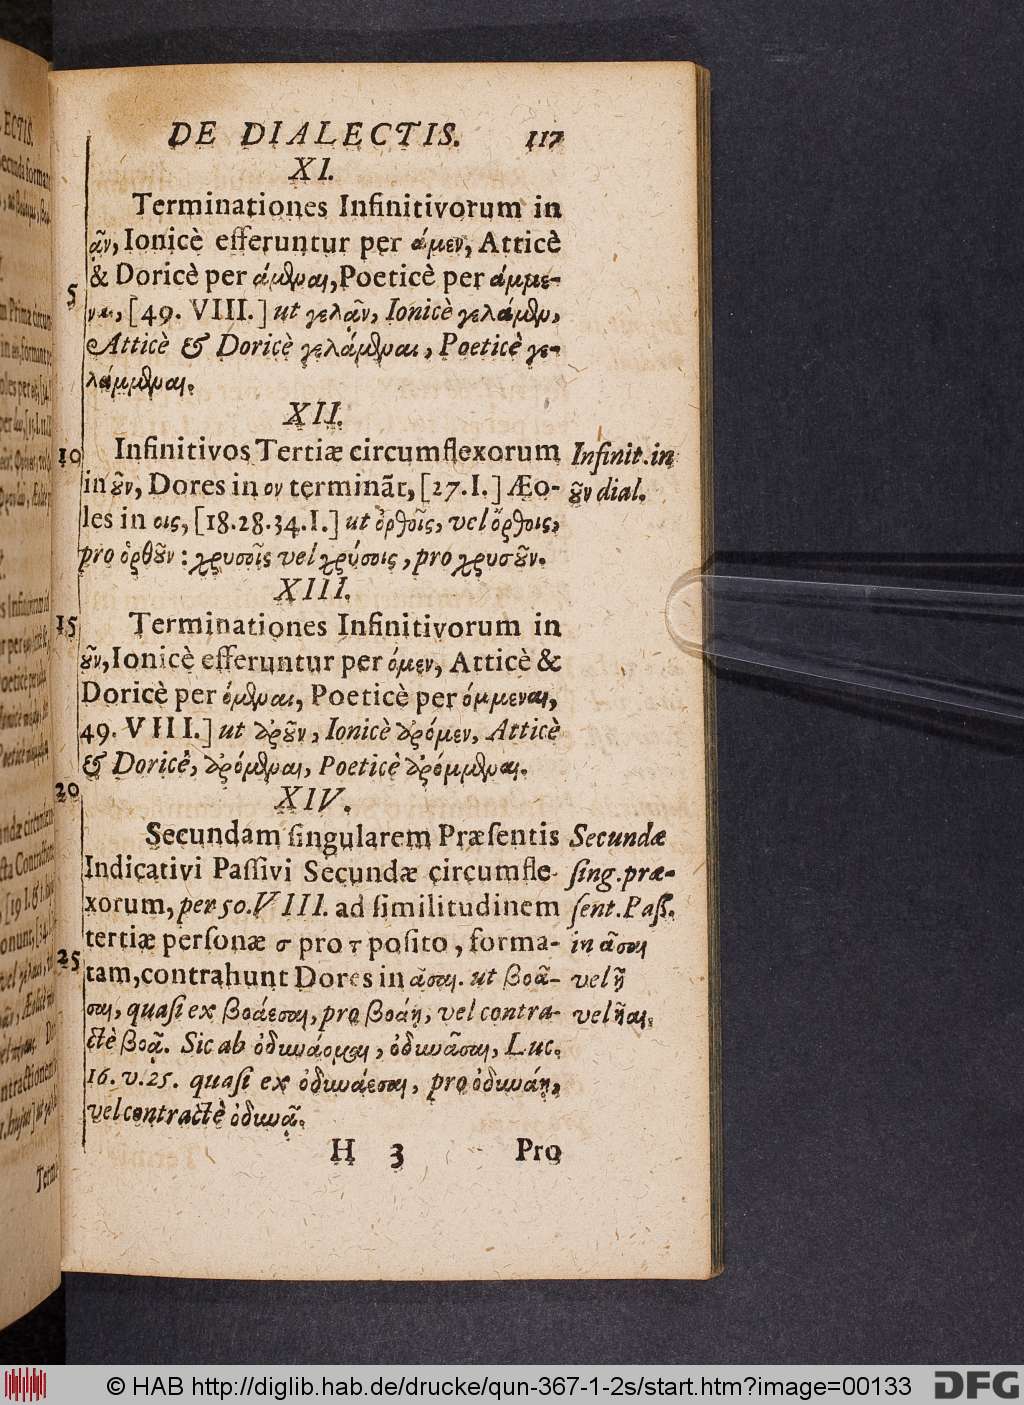 DE DIALECTIS. 117
XI.
Terminationes Infinitivorum in
ᾷν, Ionicè efferuntur per άμεν, Atticè
& Doricè per άμεναι, Poeticè per άμμε-
5
ναι, [49. VIII.] ut γελᾷν, Ionicè γελάμεν,
Atticè & Doricè γελάμεναι, Poeticè γε-
λάμμεναι.
XII.
10 Infinitivos Tertiæ circumflexorum
Infinit. in
in ȣ͂ν, Dores in ον terminãt, [27. I.] Æo-
ȣ͂ν dial.
les in οις, [18. 28. 34. I.] ut ὀρθοῖς, vel ὄρθοις,
pro ὀρθȣ͂ν: χρυσοῖς vel χρύσοις, pro χρυσȣ͂ν.
XIII.
15 Terminationes Infinitivorum in
ȣ͂ν, Ionicè efferuntur per όμεν, Atticè &
Doricè per όμεναι, Poeticè per όμμεναι,
49. VIII.] ut δρȣ͂ν, Ionicè δρόμεν, Atticè
& Doricè, δρόμεναι, Poeticè δρόμμεναι.
20
XIV.
Secundam singularem Præsentis
Secundæ
Indicativi Passivi Secundæ circumfle-
sing. præ-
xorum, per 50. VIII. ad similitudinem
sent. Pass.
tertiæ personæ σ pro τ posito, forma-
in ᾶσαι
25 tam, contrahunt Dores in ᾶσαι. ut βοᾶ-
vel ῇ
σαι, quasi ex βοάεσαι, pro βοάῃ, vel contra-
vel ῆαι.
ctè βοᾷ. Sic ab ὀδυνάομαι, ὀδυνᾶσαι, Luc.
16. v. 25. quasi ex ὀδυνάεσαι, pro ὀδυνάῃ,
vel contractè ὀδυνᾷ.
H 3 Pro
© HAB http://diglib.hab.de/drucke/qun-367-1-2s/start.htm?image=00133
DFG